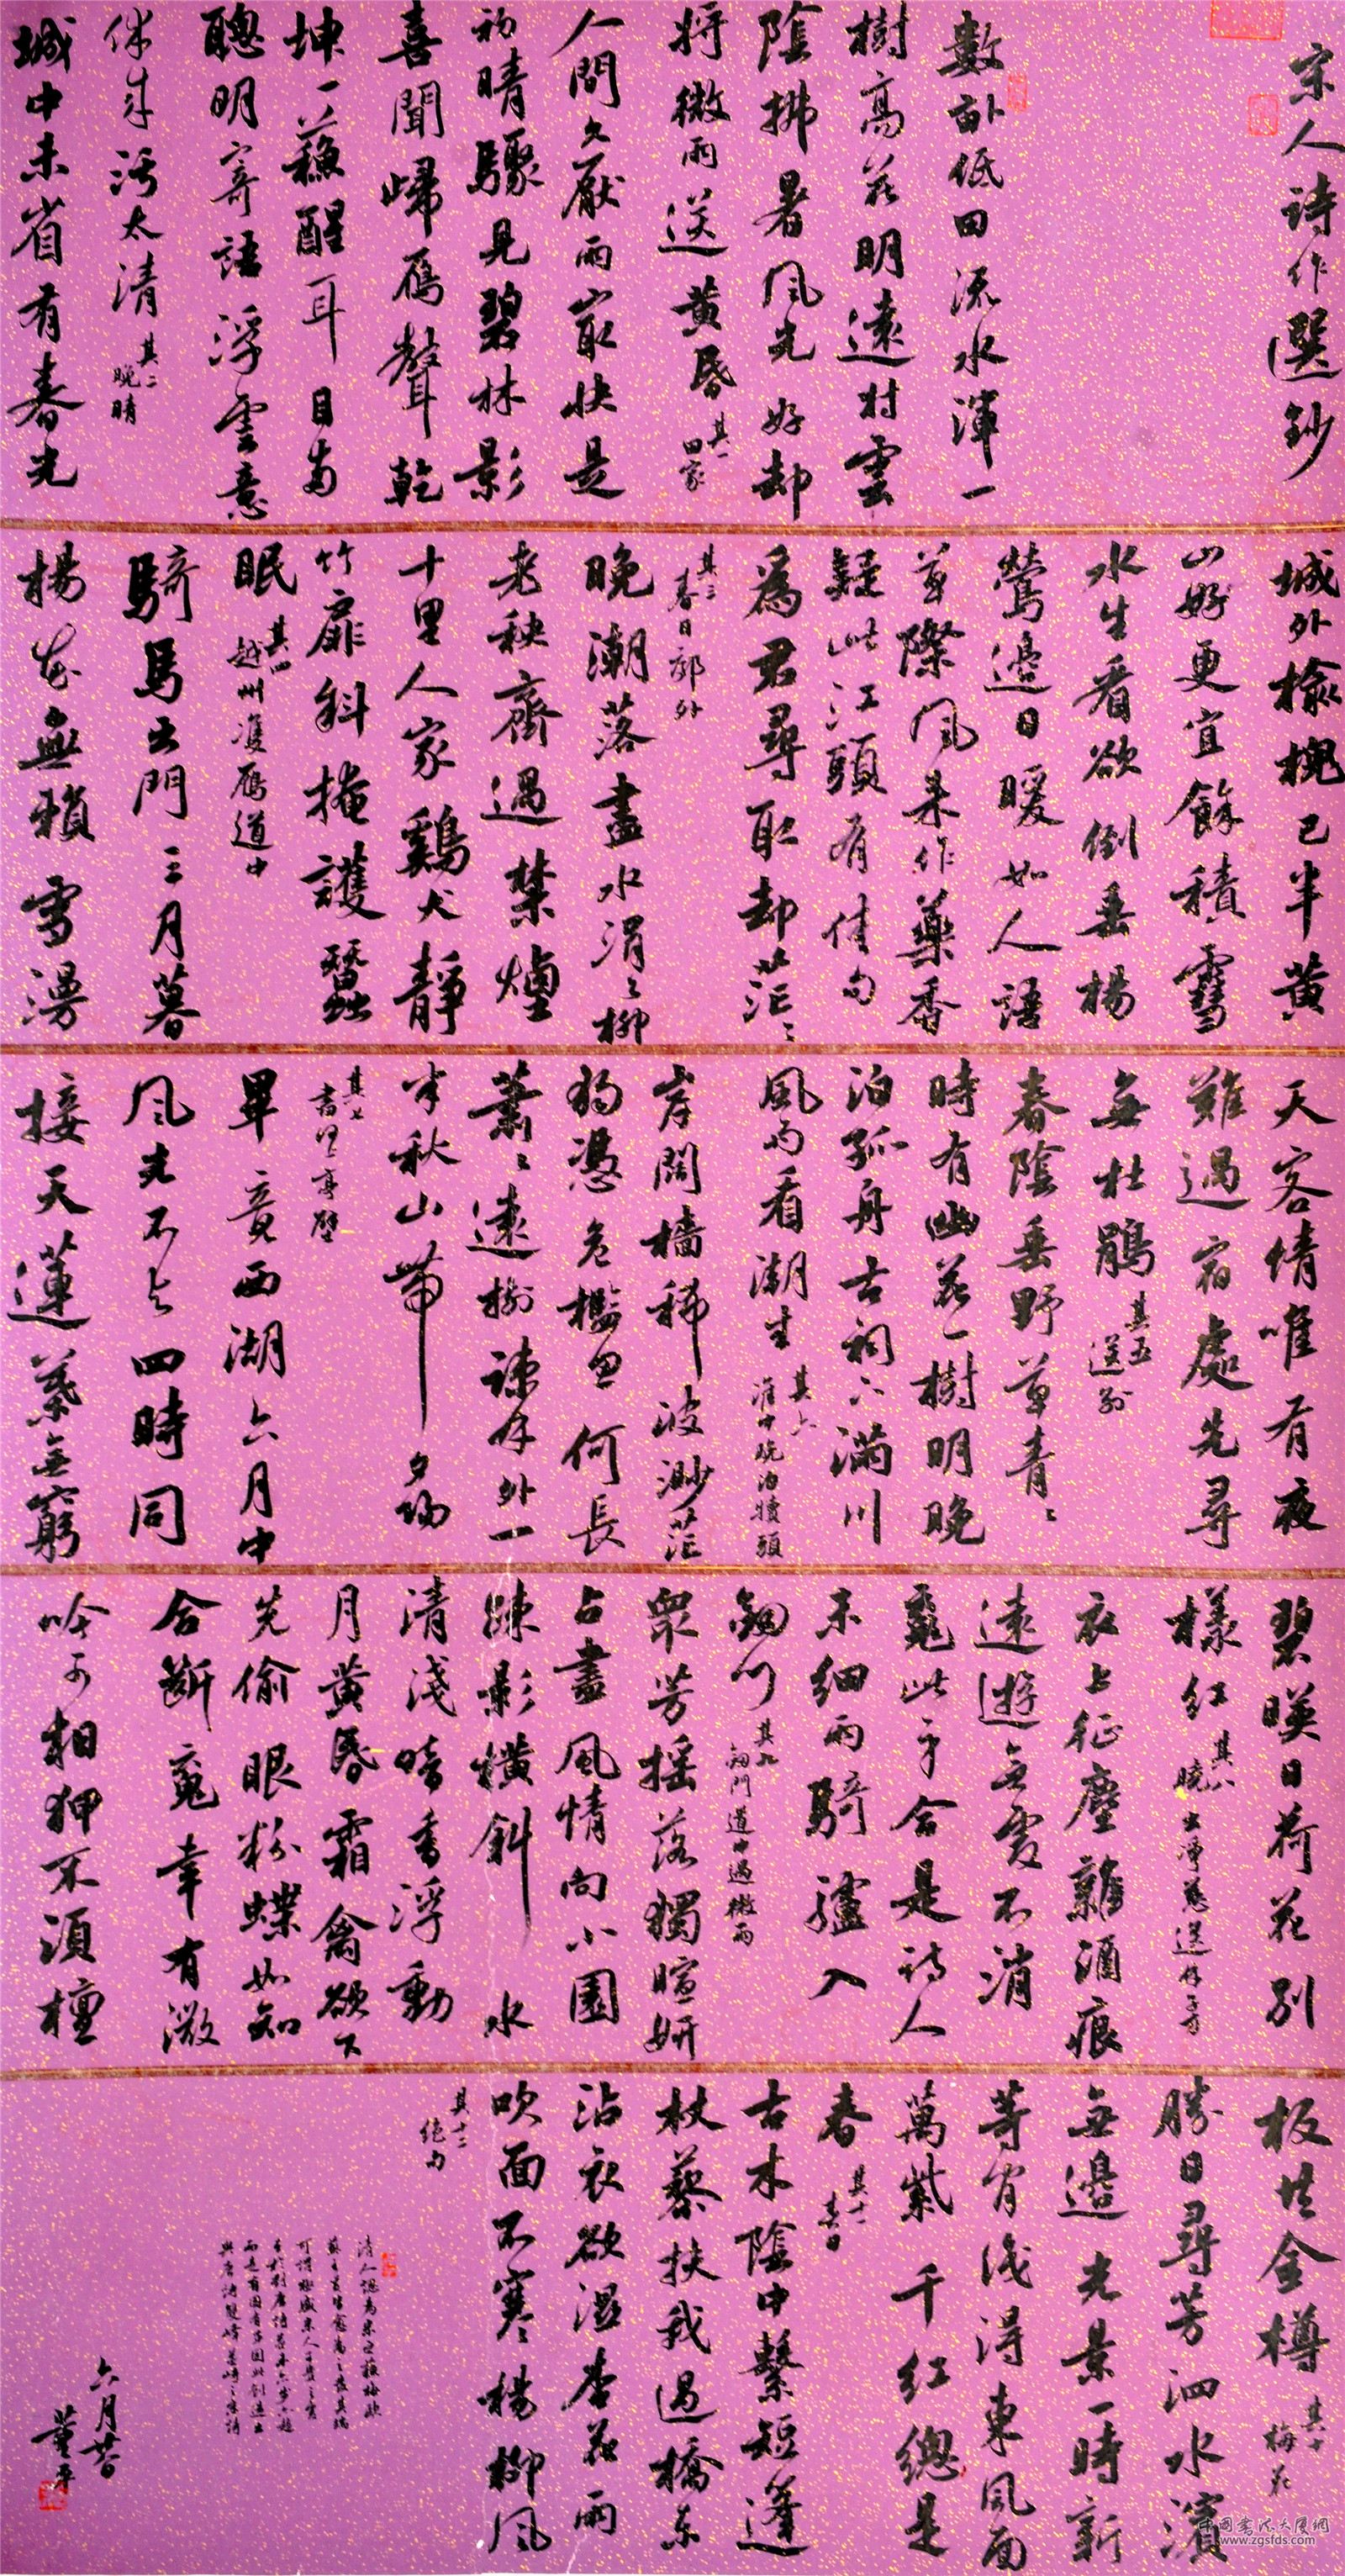 宋人詩作選鈔
數畝低田流水渾一
樹高花明遠村雲
陰拂暑風光好却
將微雨送黄昏
其一
田家
人間久厭雨最快是
初晴驟見碧林影
喜聞歸雁聲乾
坤一蘇醒耳目两
聰明寄語浮雲意
休來污太清
其二
晚晴
城中未省有春光
城外榆槐已半黄
山好更宜餘積雪
水生看欲倒垂楊
鶯邊日暖如人語
草際風来作藥香
疑此江頭有佳句
為君尋取却茫々
其三
春日郊外
晚潮落盡水涓々柳
老秧齊過禁煙
十里人家鷄犬静
竹扉斜掩護蠶
眠
其四
越州道中
騎馬出門三月暮
楊花無賴雪漫
天客情唯有夜
難過宿處先尋
無杜鵑
其五
送别
春陰垂野草青々
時有幽花一樹明晚
泊孤舟古祠下满川
風雨看潮生
其六
淮中晚泊犢頭
岸闊檣稀波渺茫
獨憑危檻思何長
蕭々遠樹疎林外一
半秋山帶夕陽
其七
書河上亭壁
畢竟西湖六月中
風光不与四時同
接天蓮葉無窮
碧映日荷花别
樣紅
其八
曉出净慈送林子方
衣上征塵雜酒痕
遠遊無處不消
魂此身合是詩人
未細雨騎驢入
劔門
其九
劔門道中遇微雨
衆芳摇落獨暄妍
占盡風情向小園
疎影横斜水
清淺暗香浮動
月黄昏霜禽欲下
先偷眼粉蝶如知
合斷魂幸有微
吟可相狎不須檀
板共金樽
其十
梅花
勝日尋芳泗水濱
無邊光景一時新
等閒識得東風面
萬紫千红總是
春
其十一
春日
古木陰中繫短篷
杖藜扶我過橋东
沾衣欲濕杏花雨
吹面不寒楊柳風
其十二
绝句
六月
中國書法大厦網
www.zgsfds.com